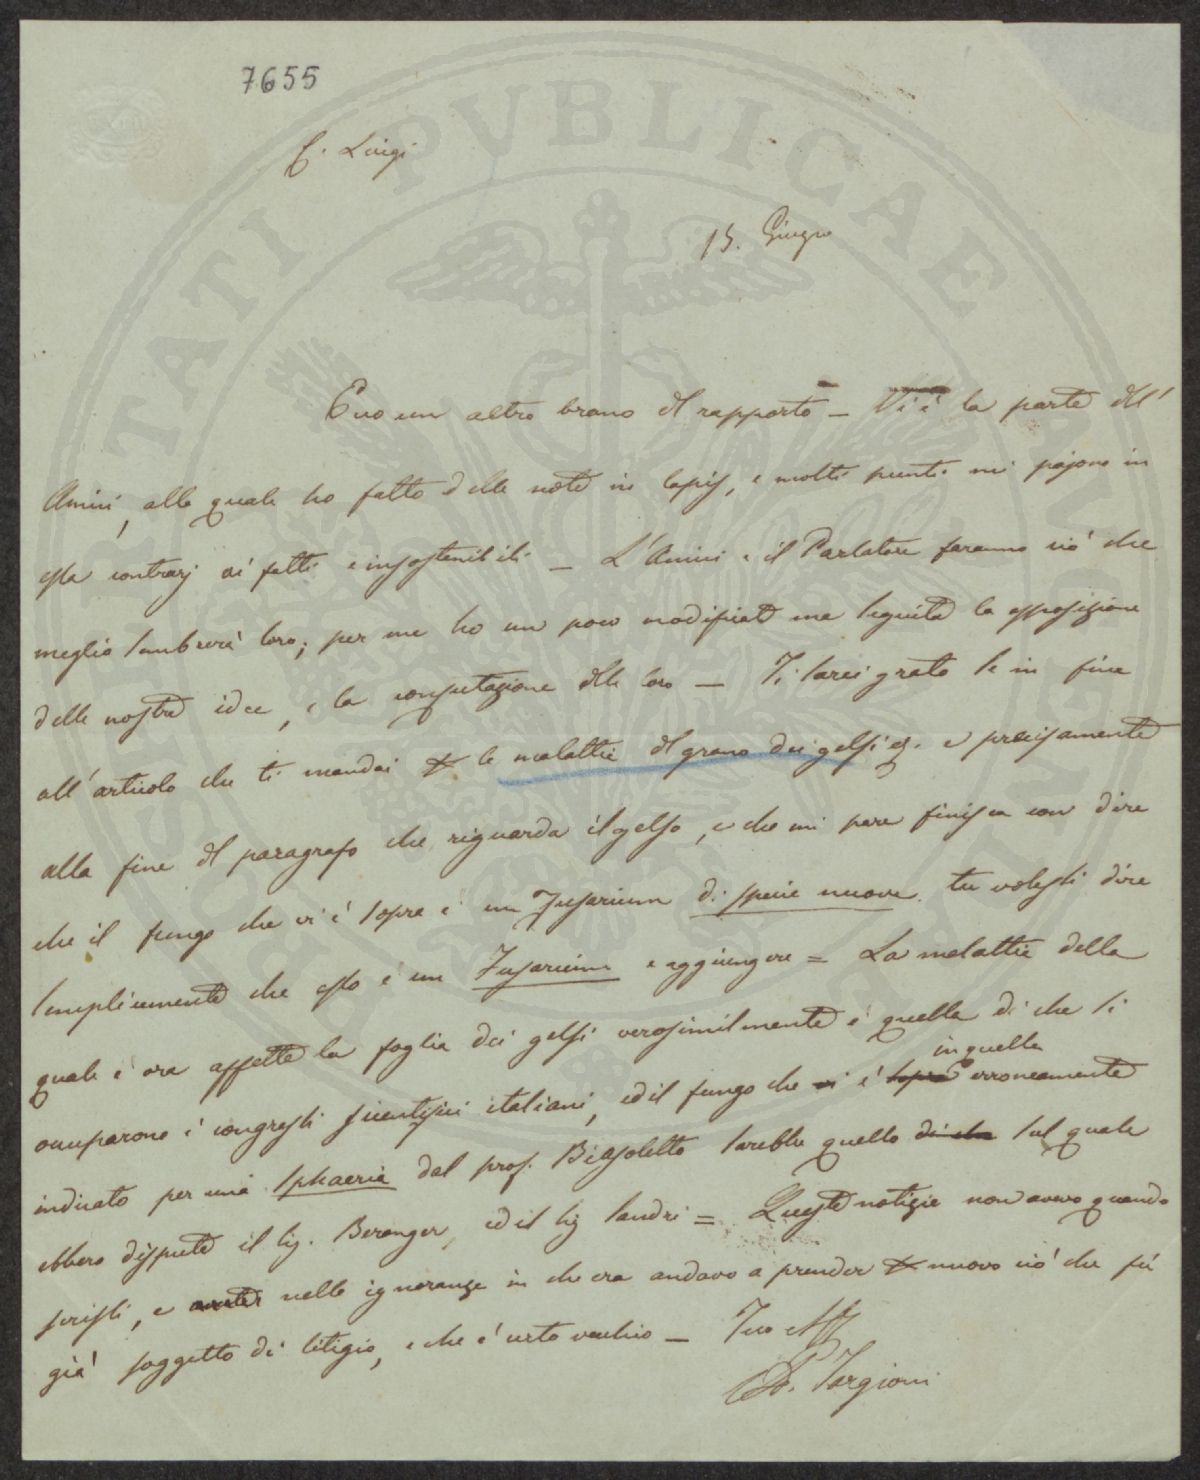 7655
C. Luigi
15. Giugno
Ecco un altro brano del rapporto — Vi è la parte dell'
Amici, alla quale ho fatto delle note in lapis, e molti punti mi pajono in
essa contrarj ai fatti e insostenibili — L'Amici e il Parlatore faranno ciò che
meglio sembrerà loro; per me ho un poco modificato ma seguita la esposizione
delle nostre idee, e la confutazione delle loro — Ti sarei grato se in fine
all'articolo che ti mandai le malattie del grano dei gelsi e precisamente
alla fine del paragrafo che riguarda il gelso, e che mi pare finisca con dire
che il fungo che vi è sopra è un Fusarium di specie nuova tu volessi dire
semplicemente che esso è un Fusarium e aggiungere = La malattia della
quale è ora affetta la foglia dei gelsi verosimilmente è quella di che si
occuparono i congressi scientifici italiani, ed il fungo che vi è sopra in quella erroneamente
indicato per una Sphaeria dal prof. Biasoletto sarebbe quello di che sul quale
ebbero dispute il Sig. Berenger, ed il Sig Sandri = Queste notizie non avevo quando
scrissi, e nella ignoranza in che era andavo a prender nuovo ciò che fù
già soggetto di litigio, e che è certo vecchio — Tuo aff
Ad. Targioni
PVBLICAE